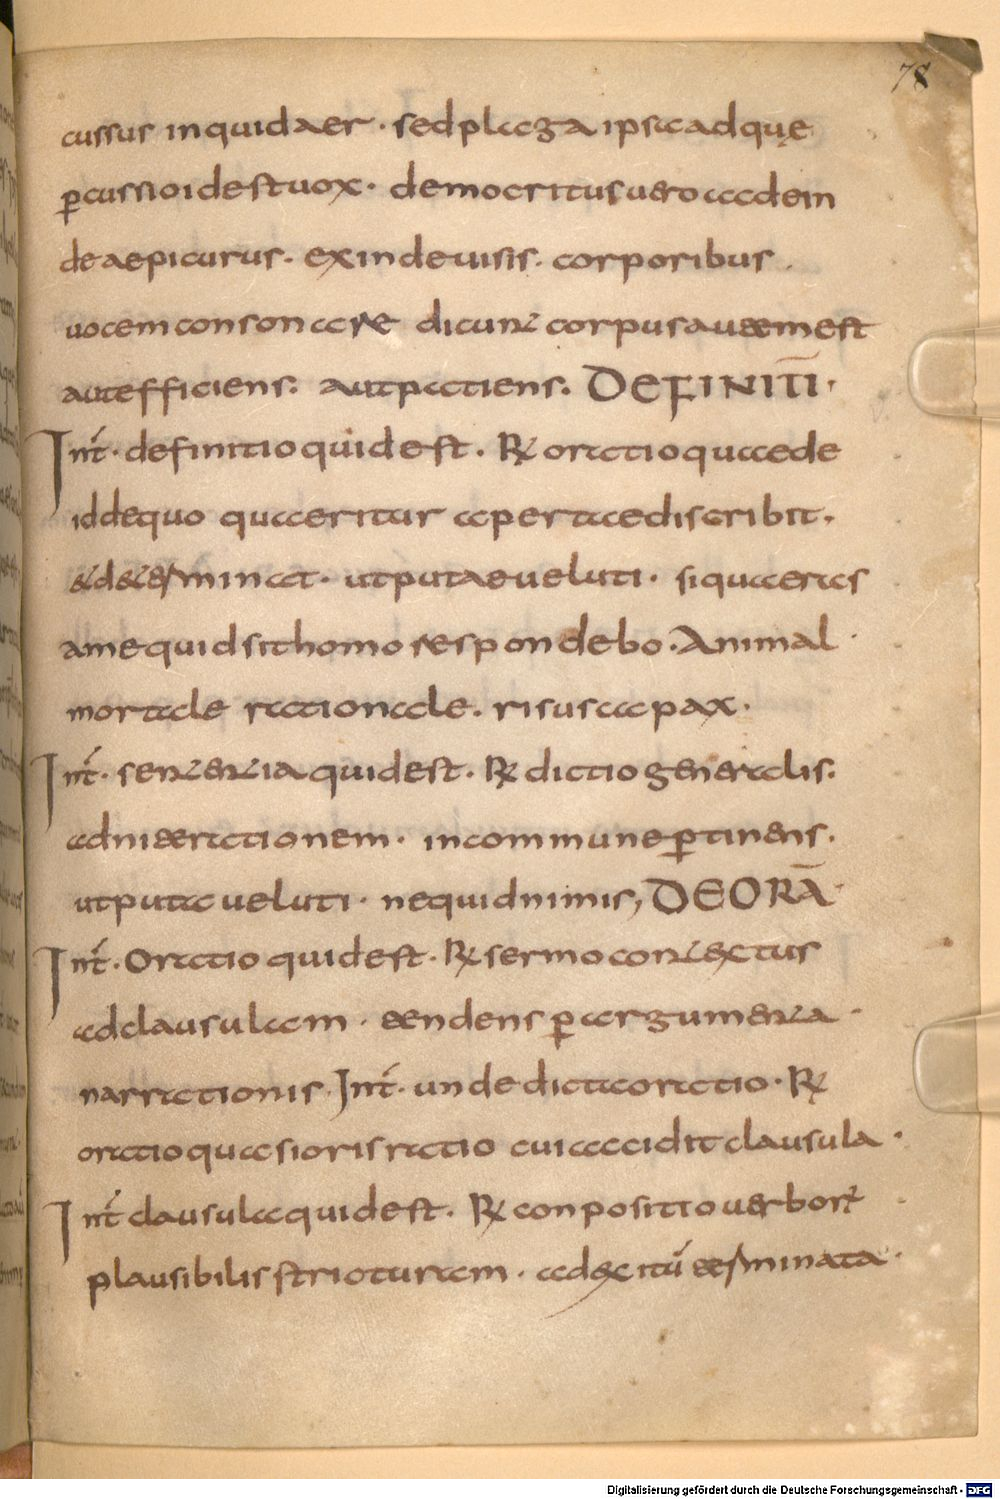 78
cussus inquid aer · sed plaga ipsa adque
p̱cussio id est uox · democritus uero adem
de aepicurus · exinde uisis · corporibus
uocem consonare dicunt corpus autem est
aut efficiens · aut patiens · DEFINITĪ ·
Int̄ · definitio quid est · R̷ oratio quae de
id de quo quaeritur aperta ediscribit ·
et determinat · utputa eueluti · si quaeras
ame quid sit homo respondebo · Animal
mortale rationale · risus capax ·
Int̄ · sententia quid est · R̷ dictio generalis ·
ad nieerationem · incommune p̱tinens ·
utputa cueluti · nequid nimis, DEORĀ ·
Int̄ · Oratio quid est · R̷ sermo contextus
ad clausulam · tendens p̱ argumenta ·
narrationis · Int̄ · unde dicta oratio · R̷
oratio quasi oris ratio cui accidit clausula ·
Int̄ clausula quid est · R̷ conpositio uerbor̄
plausibilis strioturam · ad exitū terminata ·
Digitalisierung gefördert durch die Deutsche Forschungsgemeinschaft · DFG